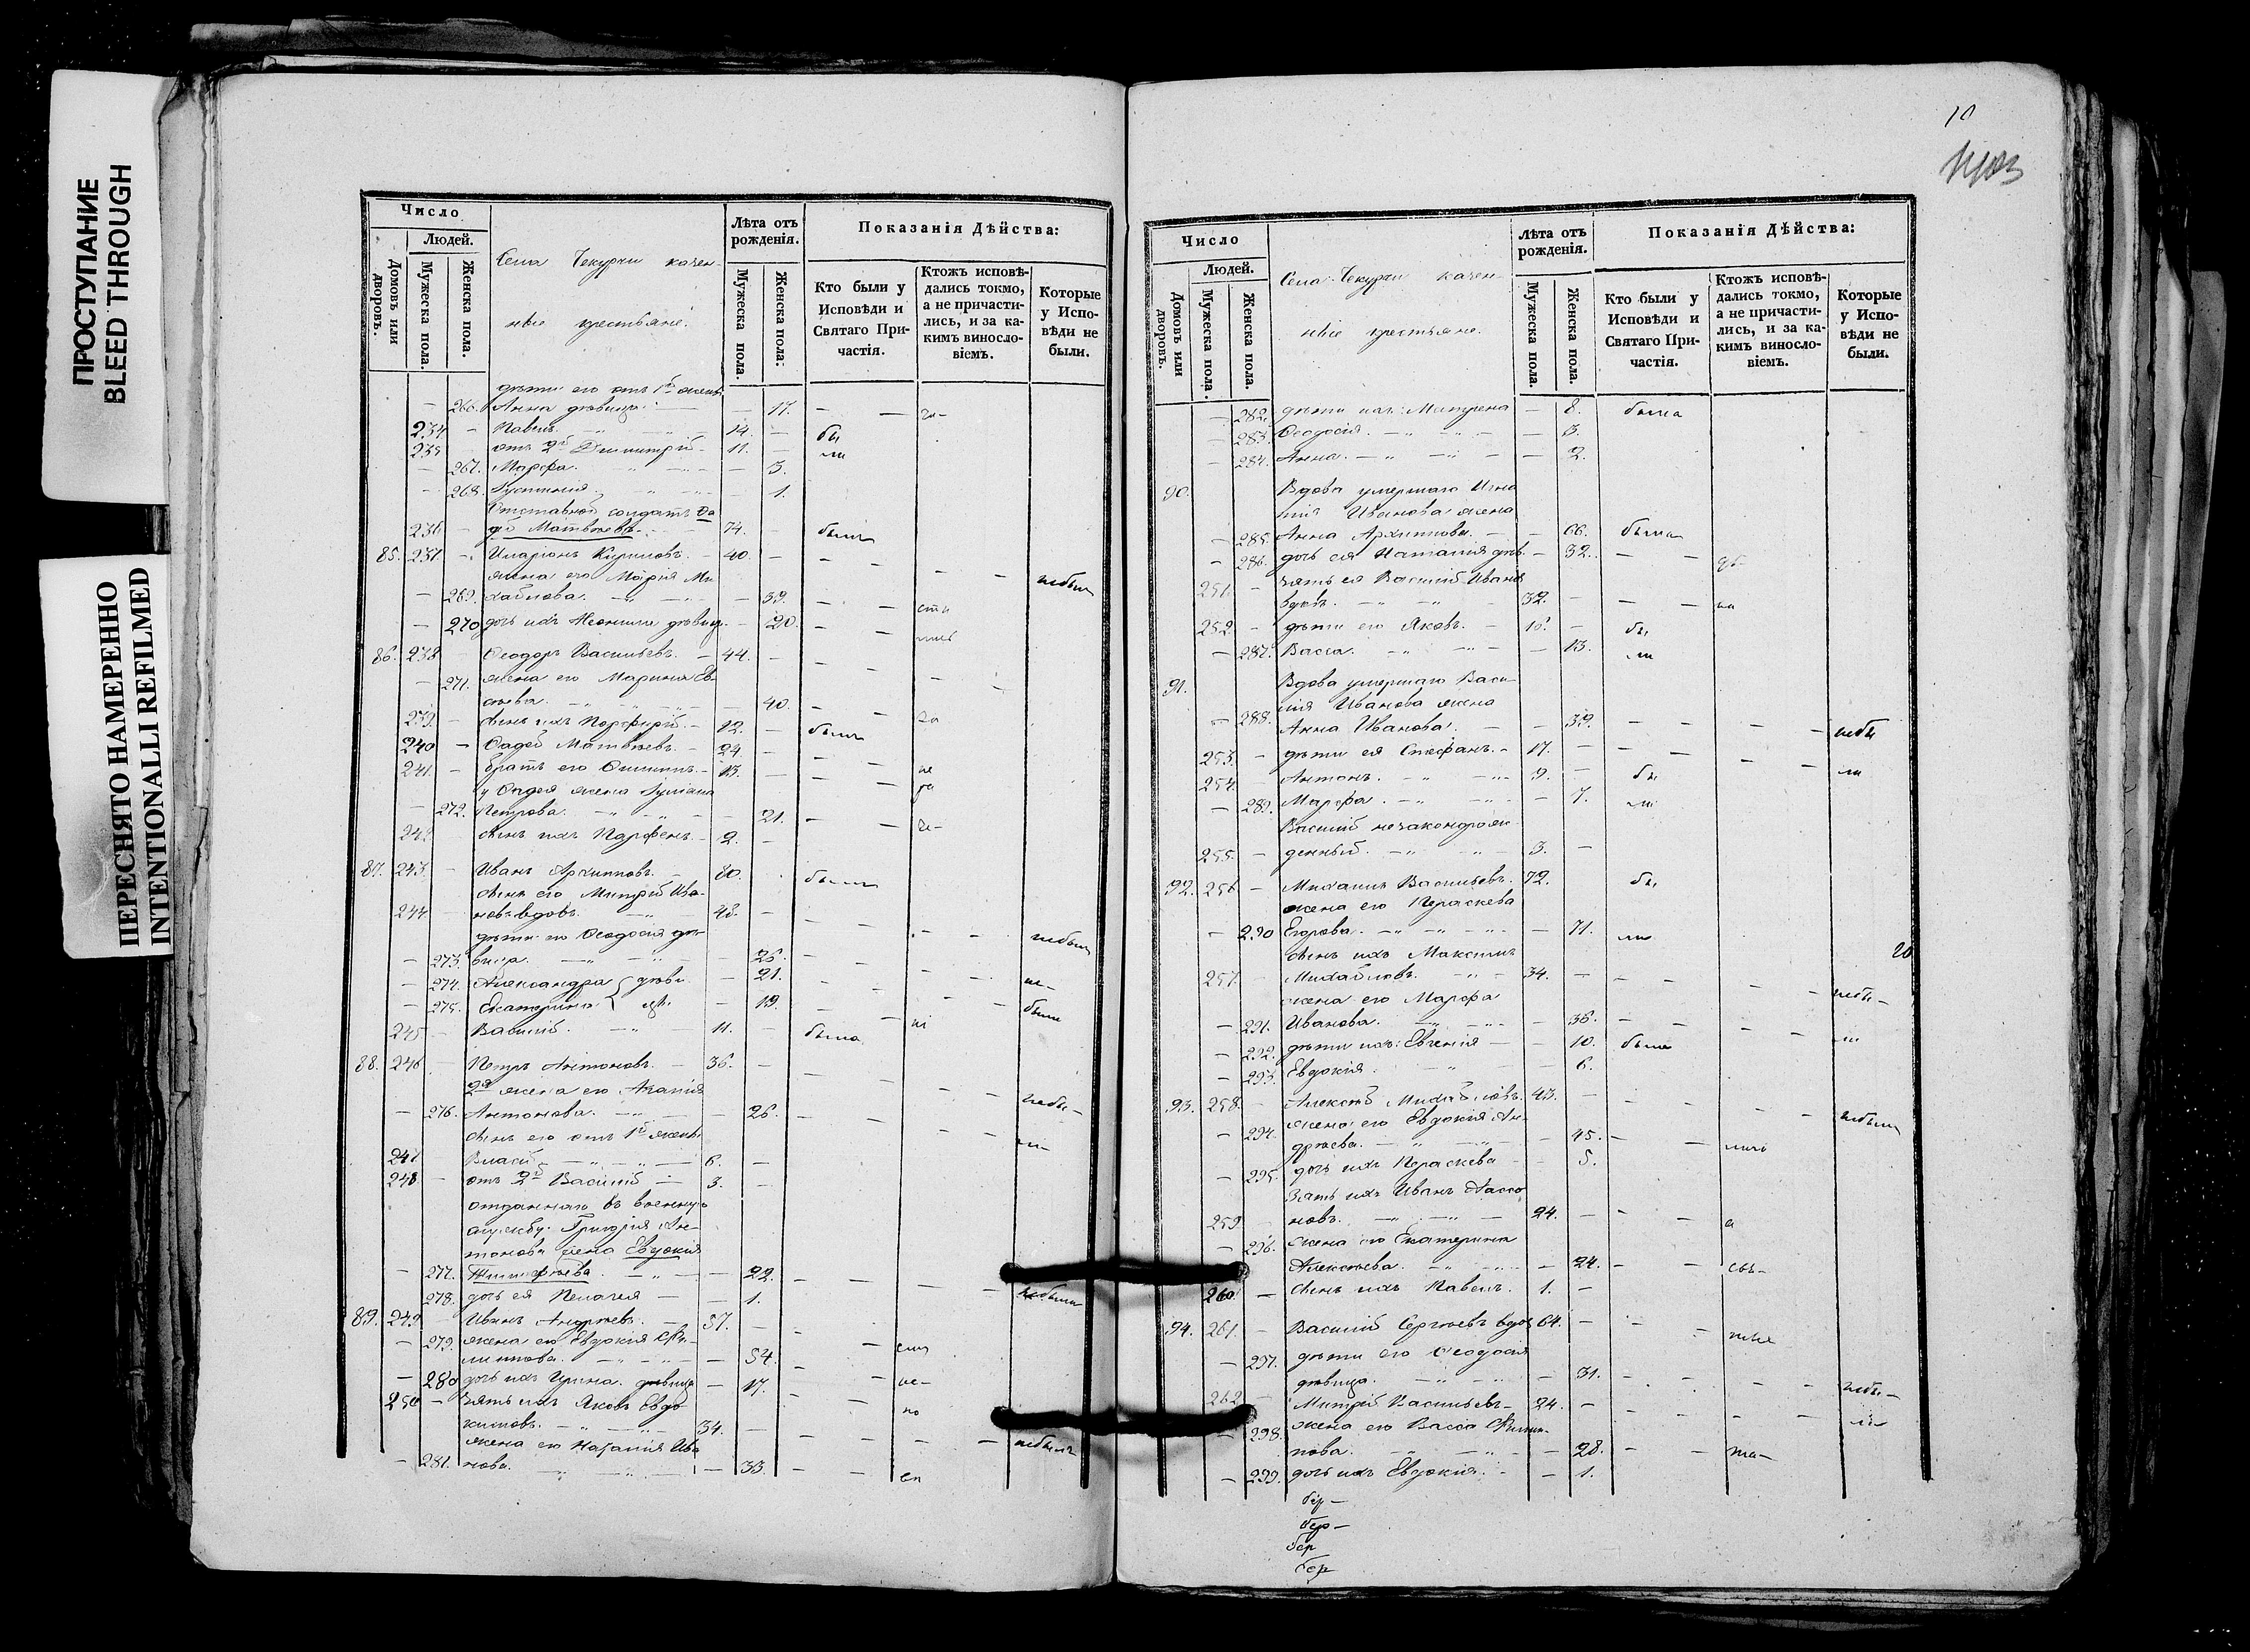 ПРОСТУПАНИЕ
BLEED THROUGH
ПЕРЕСНЯТО НАМЕРЕННО
INTENTIONALLI REFILMED
Число
Людей.
Домовъ или дворовъ.
Мужеска пола.
Женска пола.
Села Чекурчи казен-
ные крестьяне.
Лѣта отъ рожденія.
Мужеска пола.
Женска пола:
Показанія Дѣйства:
Кто были у Исповѣди и Святаго При-частія.
Ктожъ исповѣ-дались токмо, а не причасти-лись, и за ка-кимъ винословіемъ.
Которые у Испо-вѣди не были.
дѣти его отъ 1й жены
— 266. Анна дѣвица — — 17. — —
234 — Павелъ. 14. — бы
235 отъ 2й Димитрій — 11. — ли
— 267. Марфа. — 3.
— 268. Iустинія — 1.
Отставной солдатъ Ѳа
236 — дѣй Матвѣевъ. 74. были
85. 237. — Иларіонъ Кириловъ. — 40. —
жена его Марія Ми
— 269. хайлова. — 39. — небыли
— 270 дочь ихъ Неонила дѣвица — 20.
86. 238 Ѳеодоръ Васильевъ. — 44. —
— 271. жена его Марина Ев
40.
239. — сынъ ихъ Порфирій. — 12. — былъ
240 — Ѳадей Матвѣевъ. — 24 —
241. — братъ его — 13. —
у Ѳадея жена Iуліана
— 272. Петрова. — 21. —
242 сынъ ихъ Парфенъ — 2. —
87. 243. — Иванъ Архиповъ. — 80. былъ
сынъ его Митрій Ива-
244 — новъ вдовъ. 48. —
дѣти его Ѳеодосія дѣ-
— 273. вица. — 26. — небыли
— 274. Александра дѣви — 21. не-
— 275. Екатерина цы. — 19. были
245 — Василій. 11. была
88. 246 — Петръ Антоновъ. — 36. —
2я жена его Агапія
— 276. Антонова. — 26. — небы-
сынъ его отъ 1й жены ли-
247 — Власій — 6. —
248. — отъ 2й Василій — 3. —
отданнаго въ военную
службу Григорія Ан-
тонова жена Евдокія
— 277. Тимофѣева. — 22. —
278. дочь ея Пелагея — 1. небыли
89. 249. — Иванъ Андреевъ. — 57. —
— 279. жена его Евдокія Фи-
липпова. — 54.
— 280 дочь ихъ Ирина. дѣвица — 17.
250 — зять ихъ Яковъ Евдо
кимовъ. 34. —
жена его Наталія Ива небылъ
— 281. нова. — 33. —
10
Число
Людей.
Домовъ или дворовъ.
Мужеска пола
Женска пола.
Села Чекурчи казен-
ные крестьяне.
Лѣта отъ рожденія.
Мужеска пола.
Женска пола.
Показанія Дѣйства:
Кто были у Исповѣди и Святаго При-частія.
Ктожъ исповѣ-дались токмо, а не причасти-лись, и за ка-кимъ винословіемъ.
Которые у Испо-вѣди не были.
— 282. дѣти ихъ: Матрена — 8. была
— 283. Ѳеодосія. — 3.
— 284. Анна. — 2.
90. Вдова умершаго Игна
тія Иванова жена
— 285. Анна Архипова. — 66. была
— 286. дочь ея Наталия дѣв. — 32. —
251. — зять ея Василій Ивановъ
вдовъ. 32. —
252. — дѣти его Яковъ. — 16. — бы
— 287. Васса. — 13. ли
91. Вдова умершаго Васи-
лія Иванова жена
— 288. Анна Иванова. — 39. — небы
253. — дѣти ея Стефанъ. — 17. — ли
254. — Антонъ. 9. — бы
— 289. Марфа. — 7. ли
Василій незаконорож-
255. — денный. 3. —
92. 256 — Михаилъ Васильевъ. 72. бы
жена его Пераскева
— 290 Егорова. — 71. ли
сынъ ихъ Максимъ 20
257. Михайловъ. — 34. —
жена его Марфа небы-
— 291. Иванова. — 36. — ли
— 292. дѣти ихъ: Евгенія — 10. была
— 293. Евдокія. 6.
93. 258. — Алексѣй Михайловъ. 43. — небыли
— 294. жена его Евдокия Ан-
дреева. — 45. —
— 295. дочь ихъ Пераскева — 5.
зять ихъ Иванъ
259. новъ. — 24. —
— 296. жена его Екатерина
Алексѣева. — 24. —
260. — сынъ ихъ Павелъ. 1. —
94. 261. — Василій Сергѣевъ вдов. 64. —
— 297. дѣти его Ѳеодосія
дѣвица. — 31. — небы-
262 — Митрій Васильевъ — 24. — ли
— 298. жена его Васса Филип-
пова. — 28. —
— 299. дочь ихъ Евдокія. — 1.
бер —
бер —
бер
бер